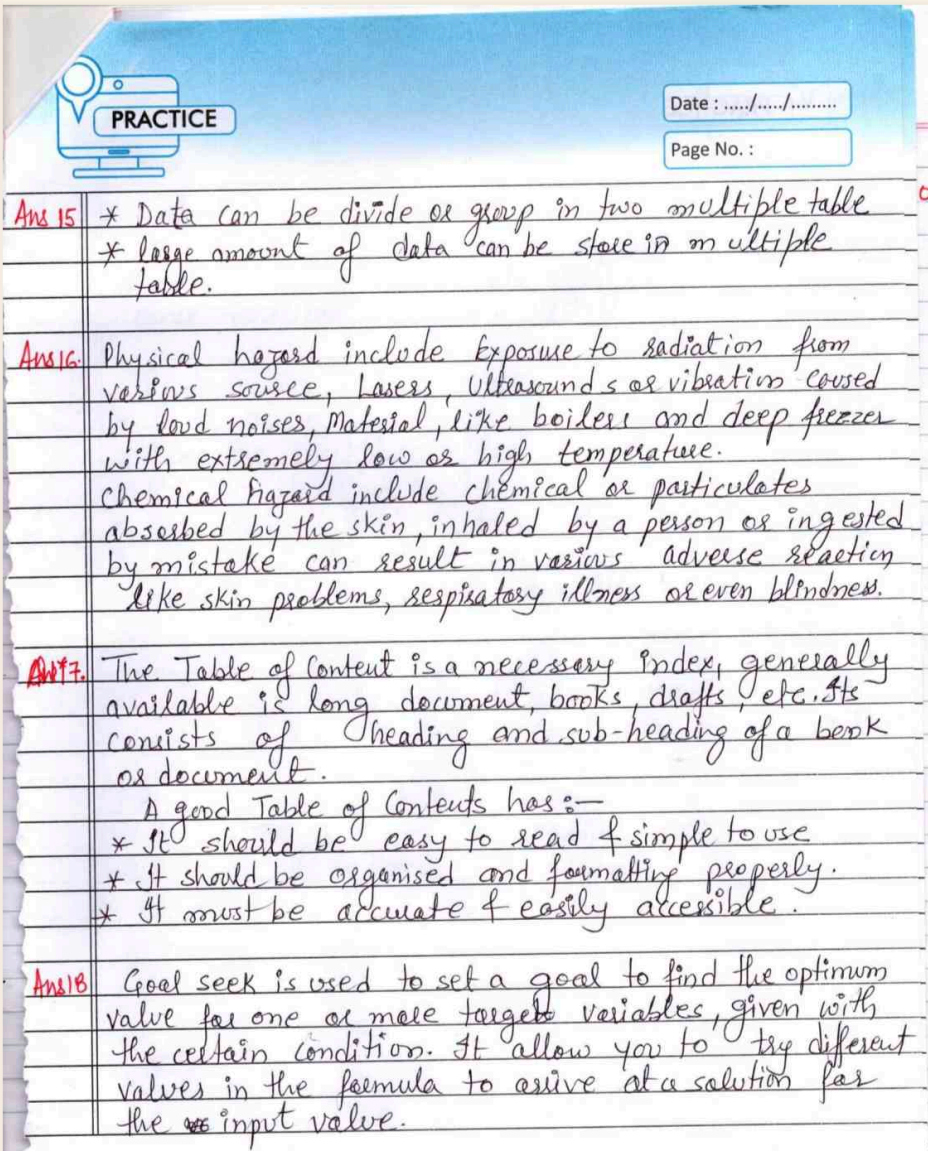 PRACTICE
Date : ...../...../.........
Page No. :
Ans 15 * Data can be divide or group in two multiple table
* large amount of data can be store in multiple
table.
Ans 16. Physical hazard include Exposure to radiation from
various source, Lasers, Ultrasounds or vibration caused
by loud noises, Material, like boilers and deep frezzer
with extremely low or high temperature.
Chemical hazard include chemical or particulates
absorbed by the skin, inhaled by a person or ingested
by mistake can result in various adverse reaction
like skin problems, respiratory illness or even blindness.
Ans 17. The Table of Content is a necessary index, generally
available is long document, books, drafts, etc. Its
consists of heading and sub-heading of a book
or document.
A good Table of Contents has :-
* It should be easy to read & simple to use
* It should be organised and formatting properly.
* It must be accurate & easily accessible.
Ans 18 Goal seek is used to set a goal to find the optimum
value for one or more target variables, given with
the certain condition. It allow you to try different
values in the formula to arrive at a solution for
the input value.